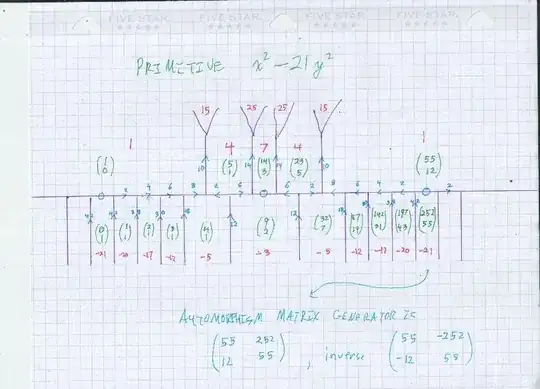 FIVE STAR FIVE STAR FIVE STAR FIVE STAR
PRIMITIVE x² - 21 y²
15 25 25 15
1 4 7 4 1
10 14 14 10
(1 0) (5 1) (14 3) (23 5) (55 12)
2 4 6 8 8 6 6 8 8 6 4 2 2
12 12
(0 1) (1 1) (2 1) (3 1) (4 1) (9 2) (32 7) (142 31) (197 43) (252 55)
-21 -20 -17 -12 -5 -3 -5 -12 -17 -20 -21
AUTOMORPHISM MATRIX GENERATOR IS
(55 252 , inverse (55 -252
12 55) -12 55)